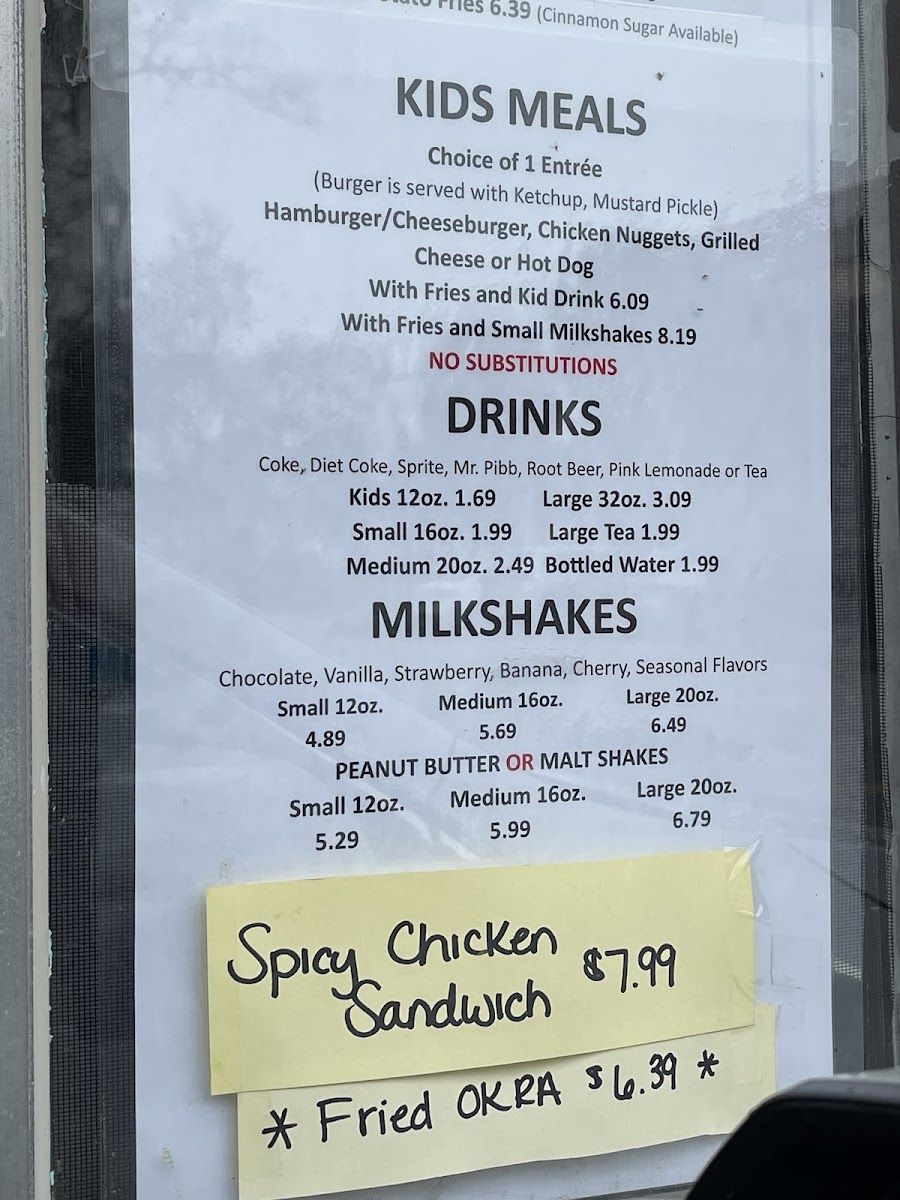 Fries 6.39 (Cinnamon Sugar Available)
KIDS MEALS
Choice of 1 Entrée
(Burger is served with Ketchup, Mustard Pickle)
Hamburger/Cheeseburger, Chicken Nuggets, Grilled
Cheese or Hot Dog
With Fries and Kid Drink 6.09
With Fries and Small Milkshakes 8.19
NO SUBSTITUTIONS
DRINKS
Coke, Diet Coke, Sprite, Mr. Pibb, Root Beer, Pink Lemonade or Tea
Kids 12oz. 1.69 Large 32oz. 3.09
Small 16oz. 1.99 Large Tea 1.99
Medium 20oz. 2.49 Bottled Water 1.99
MILKSHAKES
Chocolate, Vanilla, Strawberry, Banana, Cherry, Seasonal Flavors
Small 12oz. Medium 16oz. Large 20oz.
4.89 5.69 6.49
PEANUT BUTTER OR MALT SHAKES
Small 12oz. Medium 16oz. Large 20oz.
5.29 5.99 6.79
Spicy Chicken
Sandwich $7.99
* Fried OKRA $6.39 *